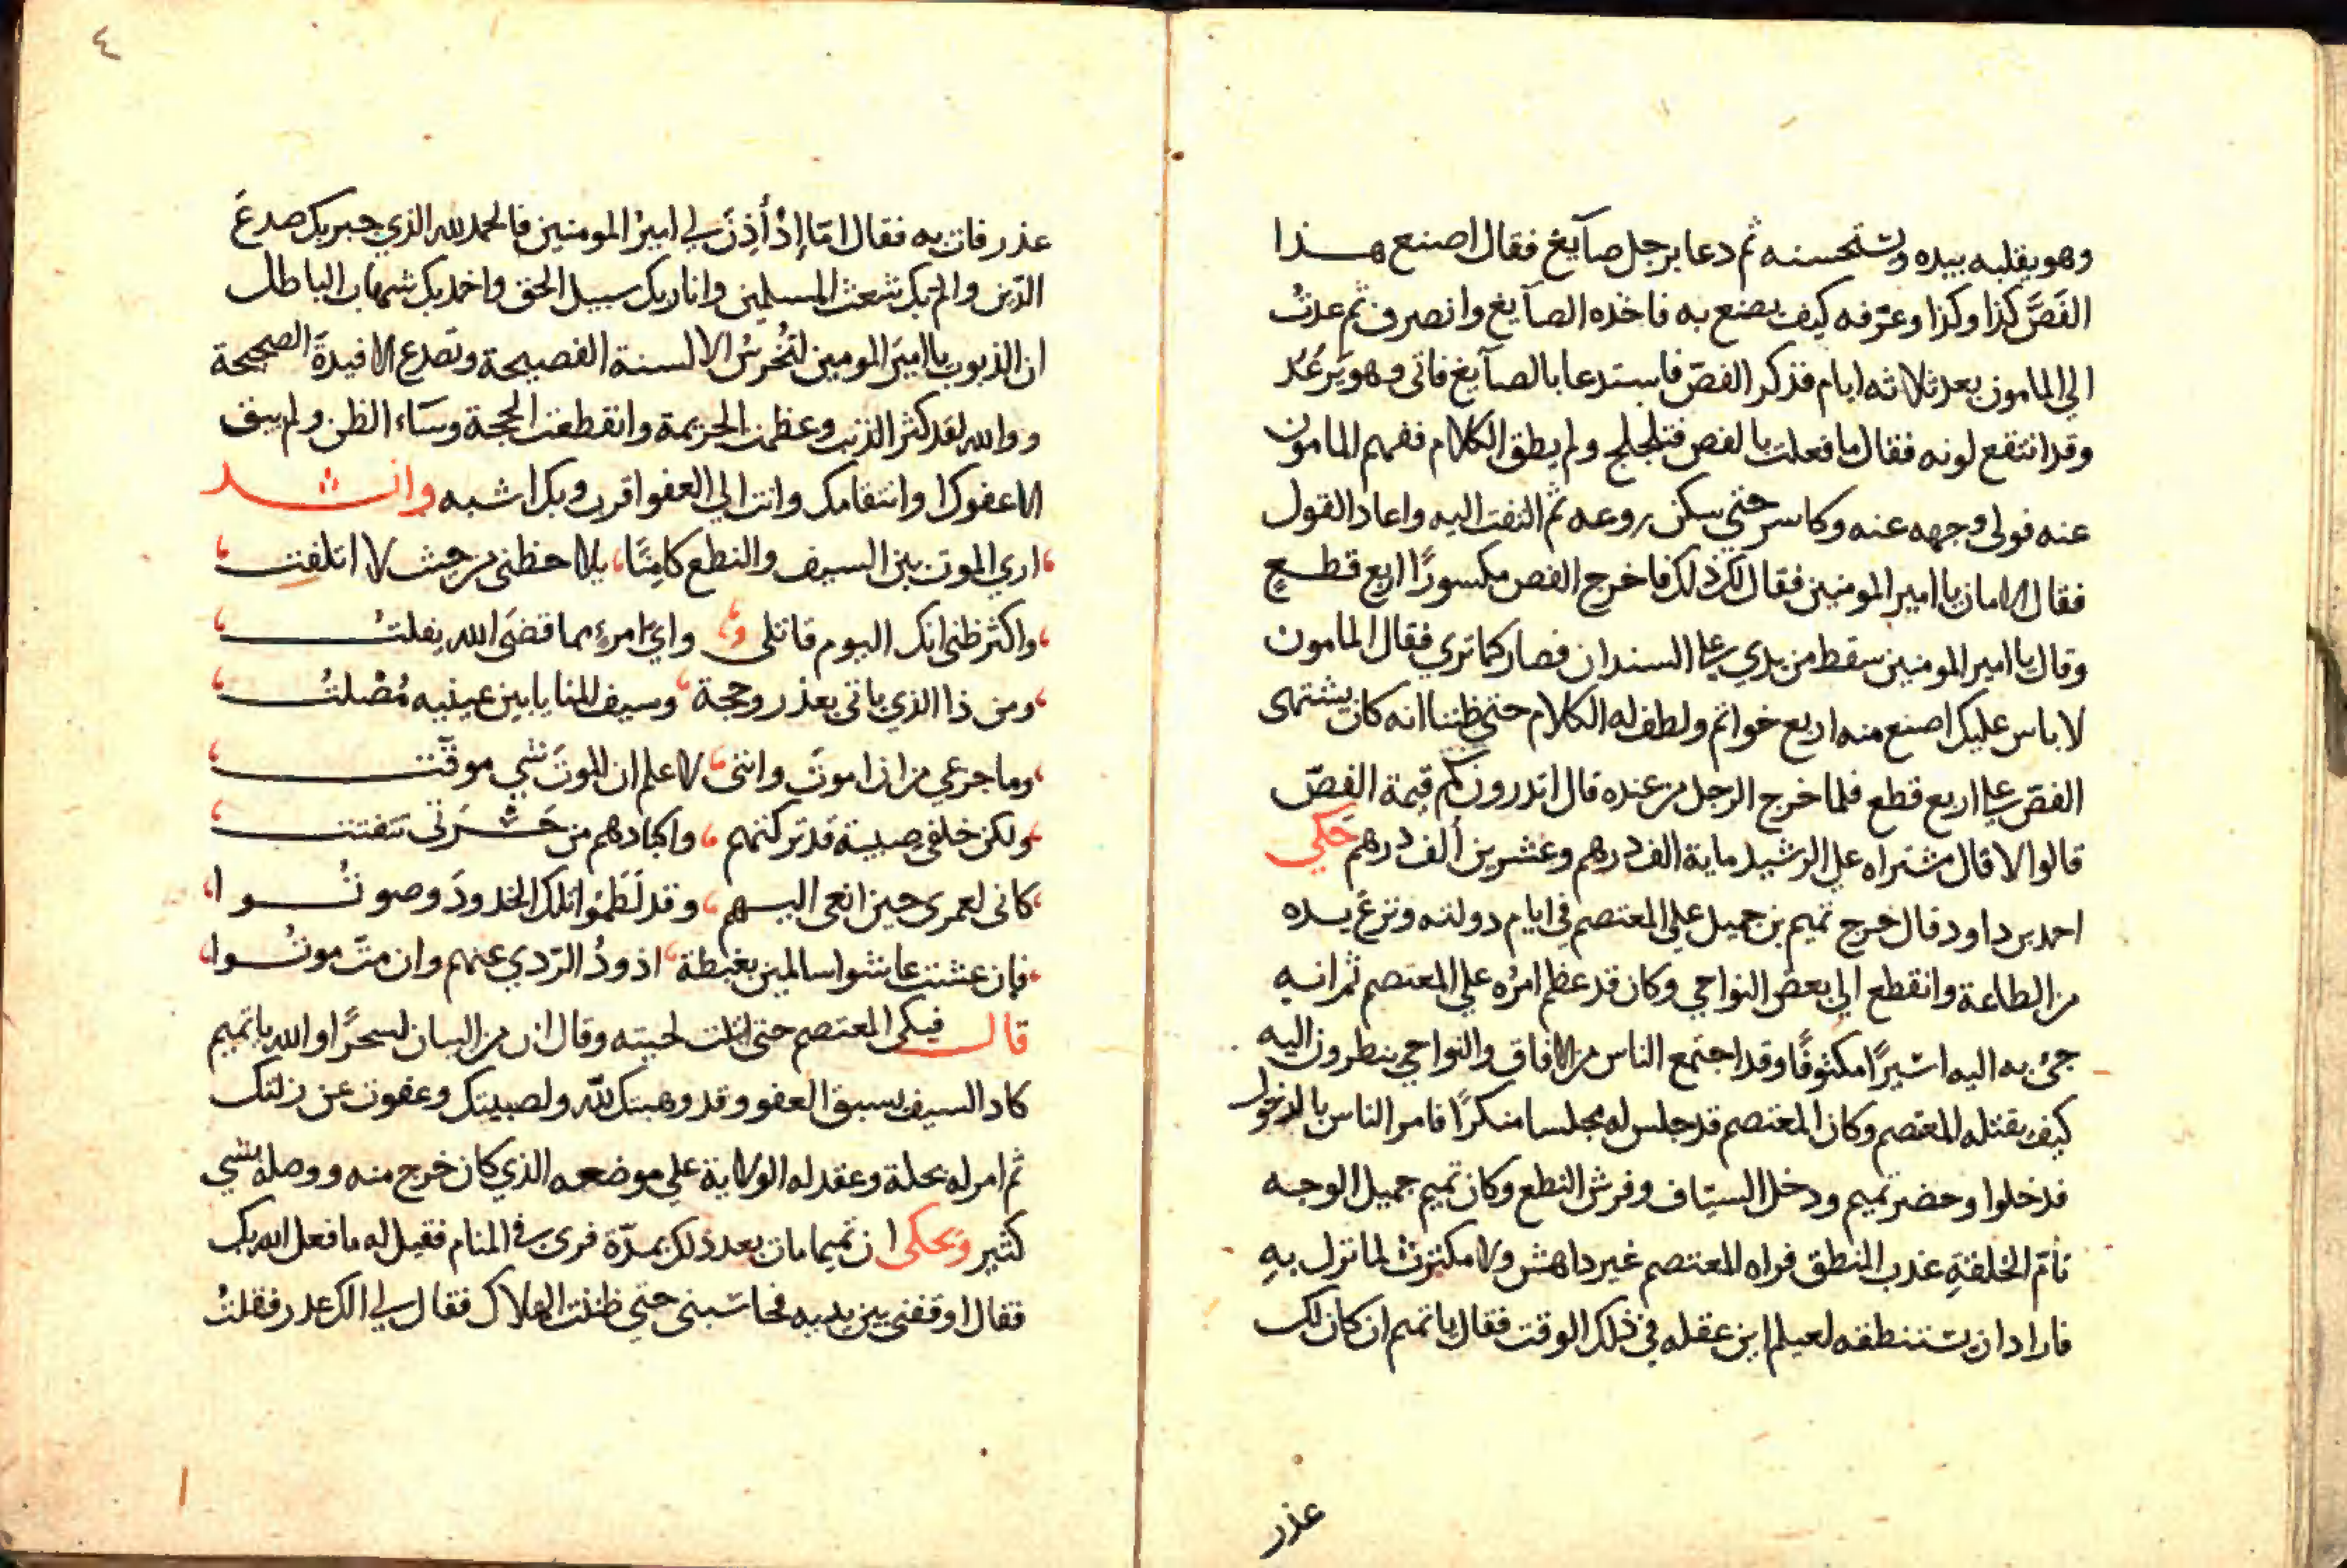 وهو يقلبه بيده ويستحسنه ثم دعا برجل صآيغ فقال اصنع هذا
الفَصَّ كذا وكذا وعرّفه كيف يصنع به فاخذه الصآيغ وانصرف ثم عدتُ
الي المامون بعد ثلاثه ايام فذكر الفصّ فاستدعا بالصآيغ فاتى وهو يَرعُد
وقد انتقع لونه فقال ما فعلت بالفص فتلجلج ولم يطق الكلام ففهم المامون
عنه فولى وجهه عنه وكاسر حتى سكن روعه ثم التفت اليه واعاد القول
فقال الامان يا امير المومنين فقال لك ذلك فاخرج الفص مكسورًا اربع قطع
وقال يا امير المومنين سقط من يدي علي السندان فصار كما تري فقال المامون
لا باس عليك اصنع منه اربع خواتم ولطف له الكلام حتى ظننا انه كان يشتهى
الفصّ علي اربع قطع فلما خرج الرجل من عنده قال اتدرون كم قيمة الفصّ
قالوا لا قال مشتراه علي الرشيد ماية الف درهم وعشرين ألف درهم حَكي
احمد بن داود قال خرج تميم بن جميل علي المعتصم في ايام دولته ونزع يده
من الطاعة وانقطع الي بعض النواحي وكان قد عظم امرُه علي المعتصم ثم انه
جئ به اليه اسيرًا مكتوفًا وقد اجتمع الناس من الافاق والنواحي ينظرون اليه
كيف يقتله المعتصم وكان المعتصم قد جلس له مجلسا منكرًا فامر الناس بالدخول
فدخلوا وحضر تميم ودخل السيّاف وفرش النطع وكان تميم جميل الوجه
تامّ الخلقةِ عذب المنطق فراه المعتصم غير داهش ولا مكترث لما نزل بهِ
فاراد ان يستنطقه لعيلم اين عقله في ذلك الوقت فقال يا تميم ان كان لك
عذر
٤
عذر فات به فقال امّا إذْ أَذِنَ لي اميرُ المومنين فالحمد لله الذي جبر بك صدعَ
الدّين ولمّ بك شعث المسلمين وانار بك سبيل الحق واخمد بك شهاب الباطل
ان الذنوب يا اميرَ المومين لتُخرسُ الالسنة الفصيحة وتصدع الافيدةَ الصحيحة
ووالله لقد كثر الذنب وعظمت الجريمة وانقطعت الحجة وسَاء الظن ولم يبق
الا عفوك او انتقامك وانت الي العفو اقرب وبك اشبه وانشد
اري الموت بين السيف والنطع كامِنًا يلاحظنى من حيث لا اتلفت
واكثر ظنى انك اليوم قاتلى واي امرءٍ مما قضَى الله يفلتُ
ومن ذا الذي ياتى بعذر وحجة وسيف المنايا بين عينيه مُصْلتُ
وما جزعي من ان اموتَ واننى لاعلم ان الموتَ شي موقّت
ولكن خلفى صبية قد تركتهم واكبادهم من حَسْرَتى تتفتت
كانى لعمرى حين انعى اليهم وقد لَطَمُوا تلك الخدودَ وصوتُوا
فإن عشت عاشوا سالمين بغبطة اذودُ الرّدي عنهم وان متّ موتُوا
قال فبكى المعتصم حتى ابتلت لحيته وقال ان من البيان لسحرًا والله يا تميم
كاد السيف يسبق العفو وقد وهبتك لله ولصبيتك وعفوت عن زلتك
ثم امر له بحلة وعقد له الولاية علي موضعه الذي كان خرج منه ووصلهُ بشي
كثير وَيحكى ان تميما مات بعد ذلك بمدّة فرى في المنام فقيل له ما فعل الله بك
فقال اوقفنى بين يديه فحاسبنى حتى ظننت الهلاك فقال لي الك عذر فقلتُ